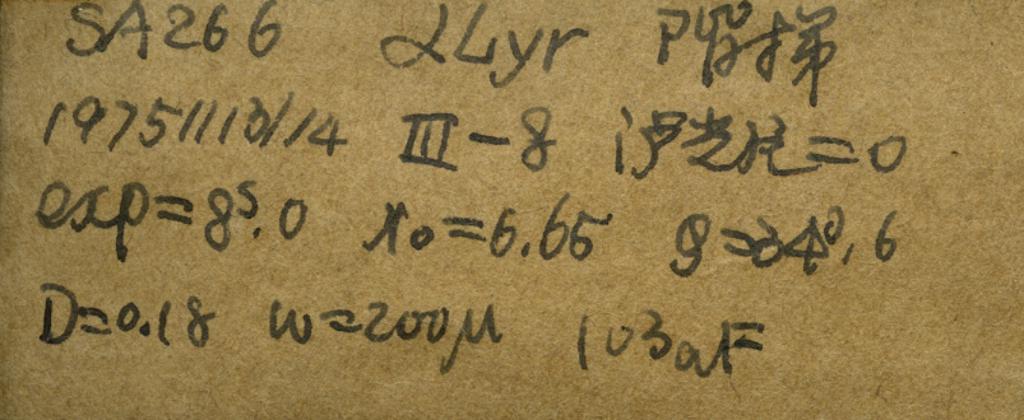 SA266 αLyr 阶梯
19751113/14 III-8 滤光片=0
exp=8ˢ.0 x₀=6.65 g=34⁰.6
D=0.18 w=200μ 103aF